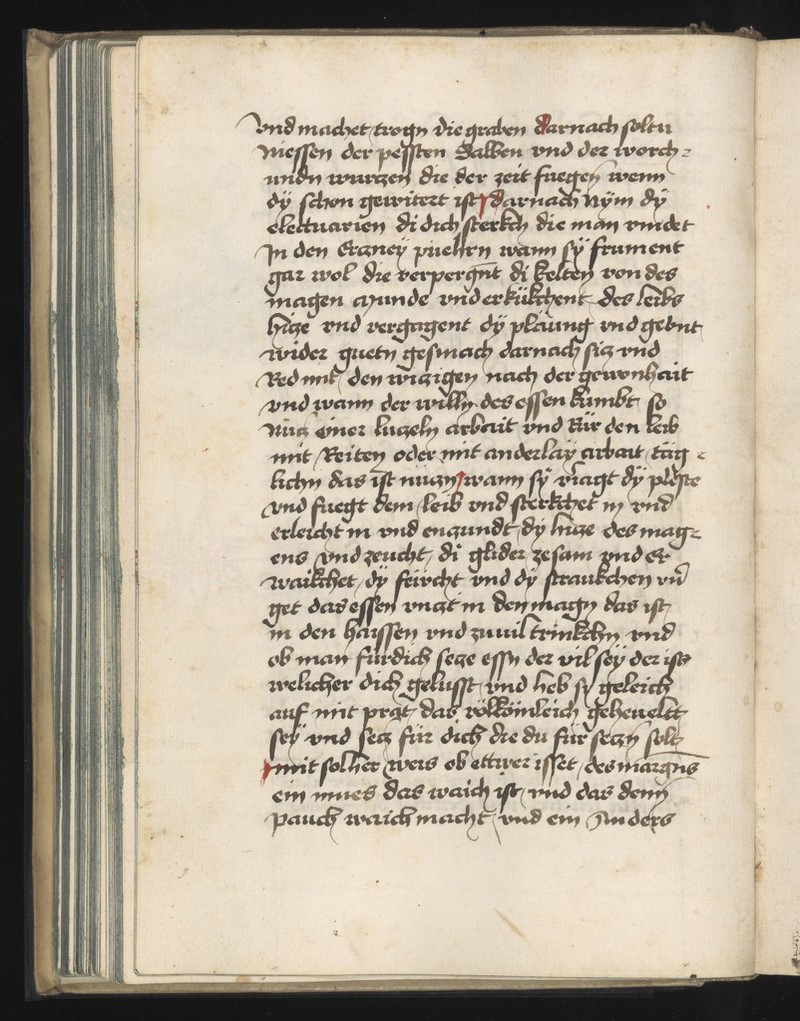 vnd machet trogn die graben darnach soltu
messen der pessten Salben vnd der worch-
undn wurczen die der zeit fuegen wenn
dÿ schon gewitert ist darnach Nÿm dÿ
electuarien di dich sterkch die man vindet
In den Erczneÿ puehrn wann sÿ frument
gar wol die verpergnt di kelten von des
magen munde vnd erkükchent des leibs
hicze vnd vergagent dÿ pläung vnd gebnt
wider guetn gesmach darnach sicz vnd
Red mit den wiczigen nach der gewonhait
vnd wann der willn des essen kumbt so
Nücz einer luczeln arbait vnd Rür den leib
mit Reiten oder mit anderlaÿ arbait täg-
lichn das ist nüczn wann sÿ viagt dÿ pleste
vnd fuegt dem leib vnd sterkchet in vnd
erleicht in vnd enczundt dÿ hicze des mag-
ens vnd zeucht di glider zesam vnd Er
waikchet dÿ feücht vnd dÿ straukchen vn̄
get das essen vnczt in den magn das ist
in den haissen vnd zuuil trinkchn vnd
ob man für dich secze essn der vil seÿ der iss
welicher dich gelusst vnd heb sÿ geleich
auf mit prot das volkömleich geheuelt
seÿ vnd secz für dich die du für seczn solt
mit solher weis ob ettwer isset des margns
ein mues das waich ist vnd das denn
pauch waich macht vnd ein Anders